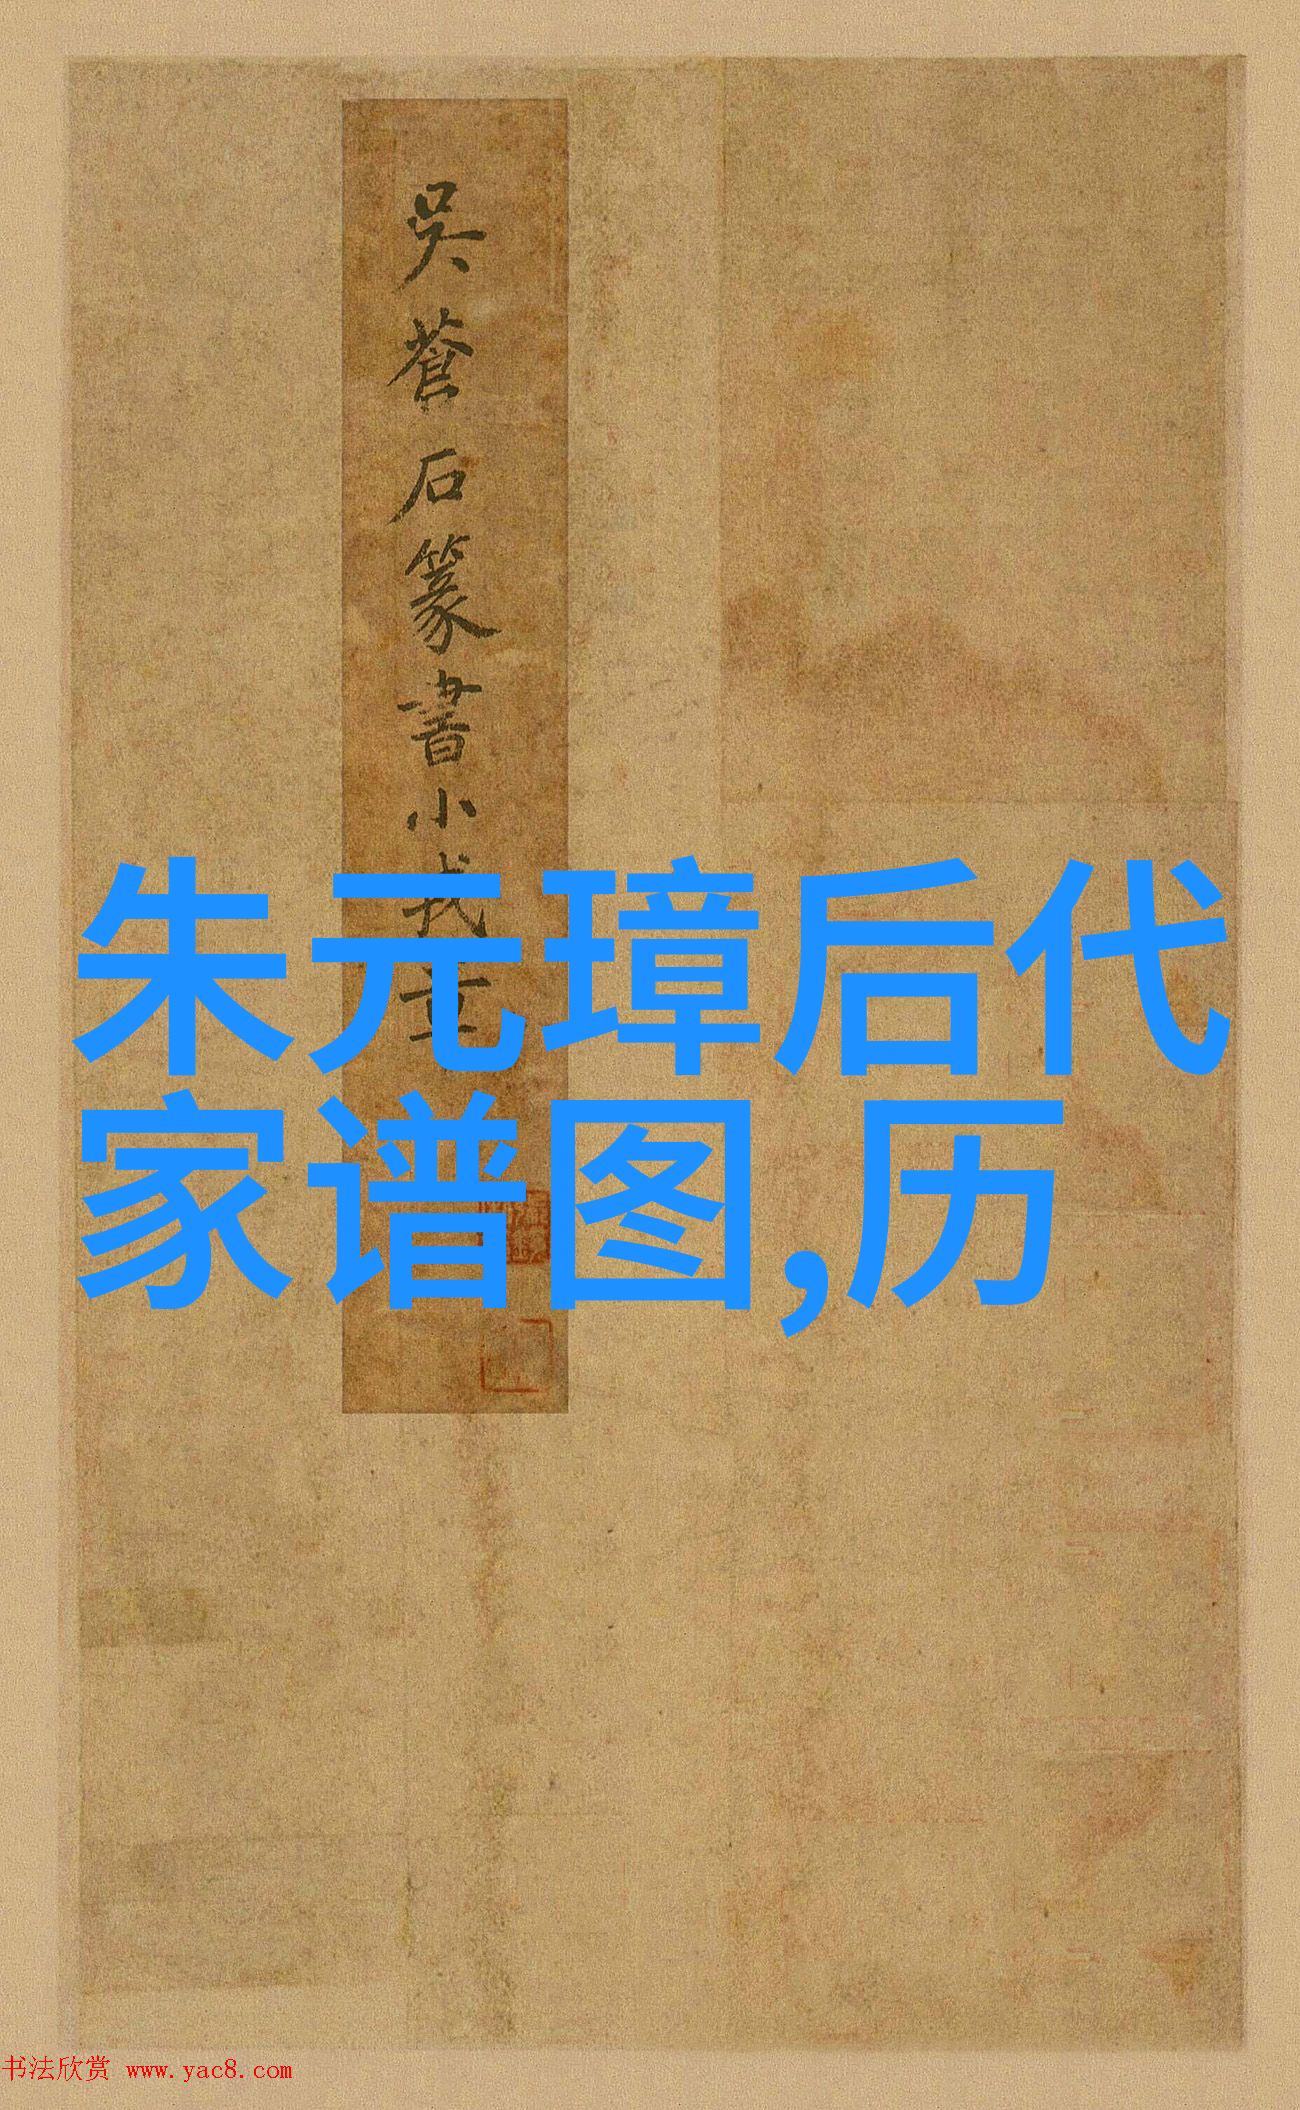 吳蒼石篆書小戎
朱元璋后代
家谱图,历
书法欣赏 www.yac8.com